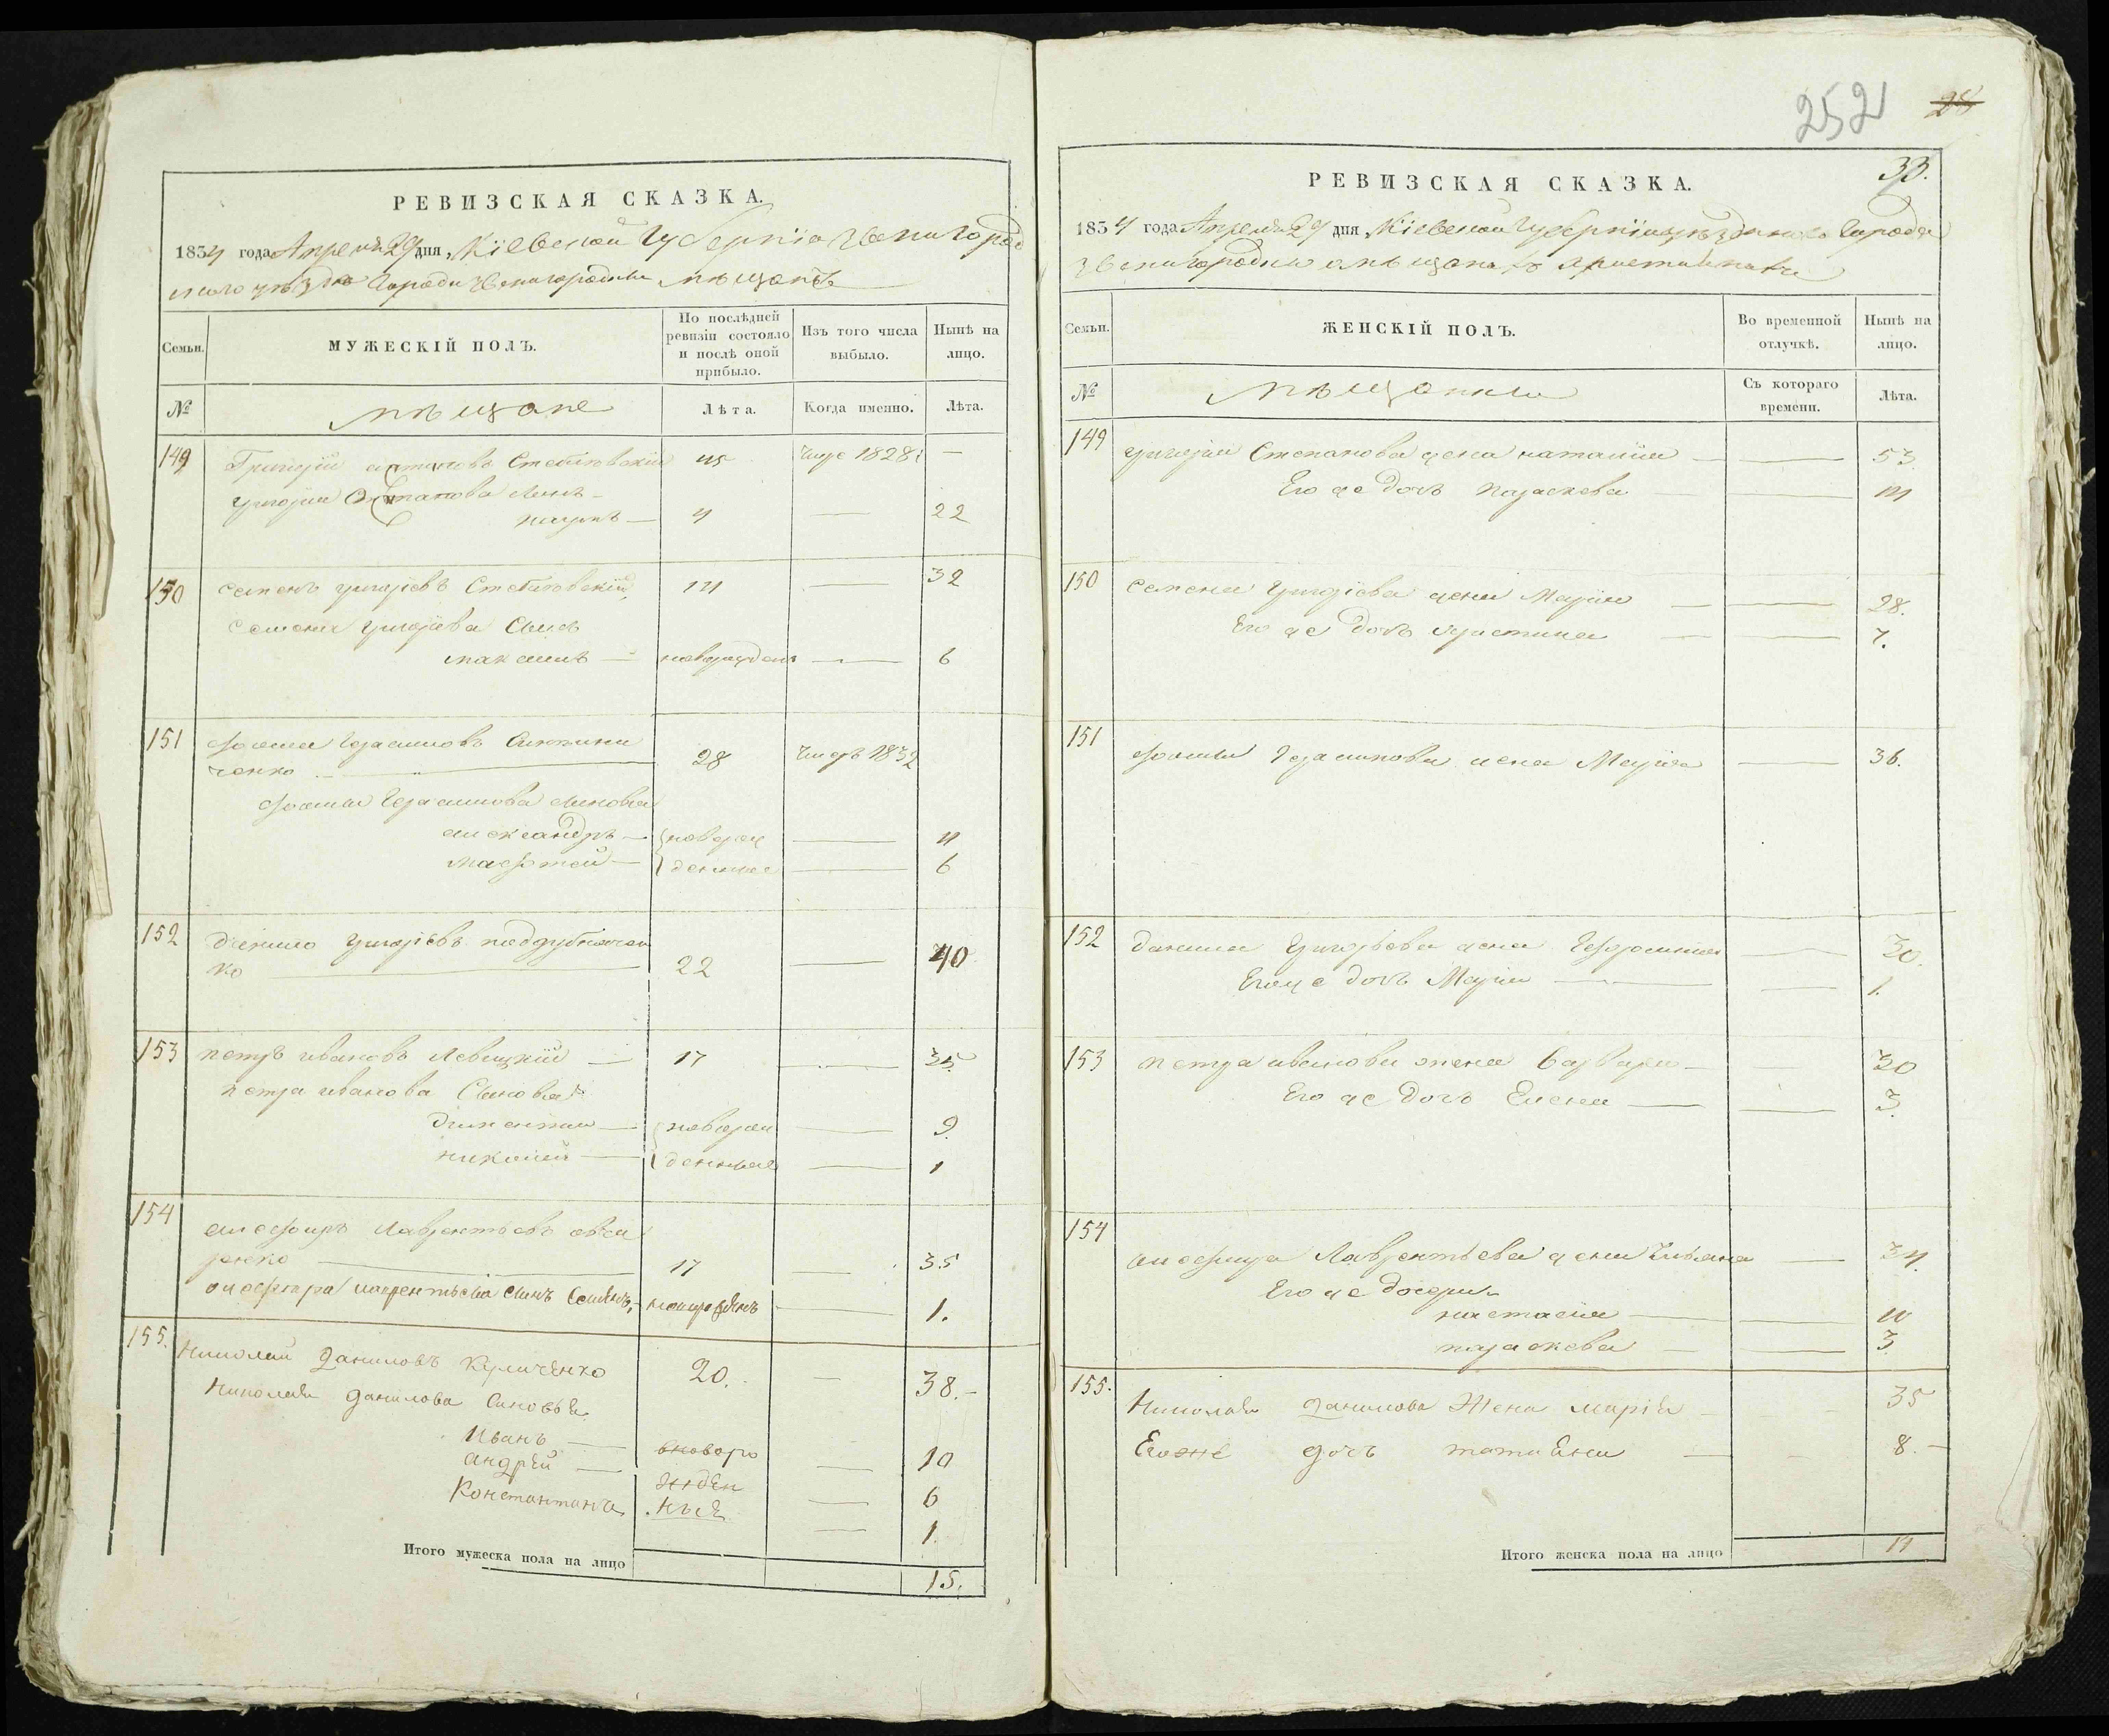 РЕВИЗСКАЯ СКАЗКА.
1834 года Апреля 29 дня, Кіевской Губерніи Звенигород
скаго уѣзда города Звенигородки мѣщанъ
Семьи. МУЖЕСКІЙ ПОЛЪ. По послѣдней ревизіи состояло и послѣ оной прибыло. Изъ того числа выбыло. Нынѣ на лицо.
№ мѣщане Лѣта. Когда именно. Лѣта.
149 Григорій Степановъ 45 умре 1828 —
Григорія Степанова сынъ
наумъ — 4 — 22
150 семенъ григорієвъ 14 — 32
семена григорієва сынъ
максимъ — новорожденъ — 6
151 фома Герасимовъ
ченко — 28 умеръ 1832
фомы Герасимова сыновья
александръ — новорож — 11
мафтей — денные — 6
152 данило григорієвъ поддубначен
ко — 22 — 40
153 петръ ивановъ Левицкій — 17 — 35
петра иванова сыновья
— новорож — 9
николай — денные — 1
154 Лаврентьевъ овча
ренко — 17 — 35
лаврентьева сынъ Семенъ, новорожденъ — 1.
155. Николай Даниловъ Куличенко 20. — 38. —
Николая Данилова Сыновья
Иванъ — вноворо — 10
Андрей — жден — 6
Константинъ ные — 1.
Итого мужеска пола на лицо 15.
252 28
33.
РЕВИЗСКАЯ СКАЗКА.
1834 года Апреля 29 дня, Кіевской Губерніи уѣзднаго города
Звенигородки мѣщанъ
Семьи. ЖЕНСКІЙ ПОЛЪ. Во временной отлучкѣ. Нынѣ на лицо.
№ мѣщанки Съ котораго времени. Лѣта.
149 григорія Степанова жена наталія — 53.
Его же дочь параскева — 14
150 семена Григорієва жена Марія — 28.
Его же дочь христина — 7.
151 фомы Герасимова жена Марія — 36.
152 данила Григорьева жена Ефросинія — 30.
Его же дочь Марія — 1.
153 петра иванова жена Варвара — 30
Его же дочь Елена — 3.
154 Лаврентьева жена Ульяна — 34.
Его же дочери
настасія — 10
параскева — 3.
155. Николая Данилова Жена марія — 35
Егоже дочь татіяна — 8. —
Итого женска пола на лицо 14